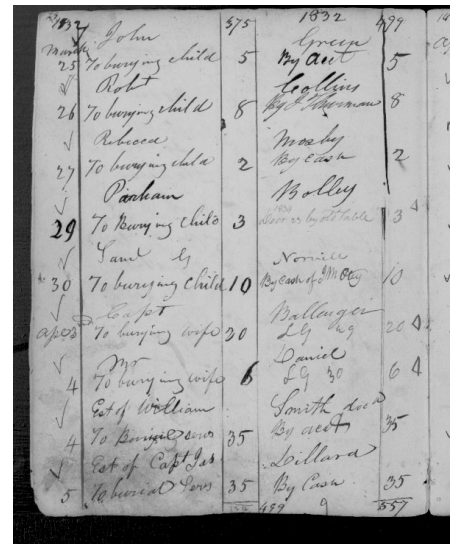 1832 375 1832 499
John Green
March 25 To burying child 5 By Acct 5
Robt Collins
26 To burying child 8 By J Thurman 8
Rebecca Mosby
27 To burying child 2 By Cash 2
Parham Bolley
29 To Burying Child 3 by 3
Saml G Norvell
30 To burying Child 10 By Cash of J M Otey 10
Capt Ballenger
To burying wife 30 LG 29 20
Mr Daniel
4 To burying wife 6 LG 30 6
Est of William Smith decd
4 To Burial servs 35 By acct 35
Est of Capt Jas Dillard
5 To burial Servs 35 By Cash 35
499 557